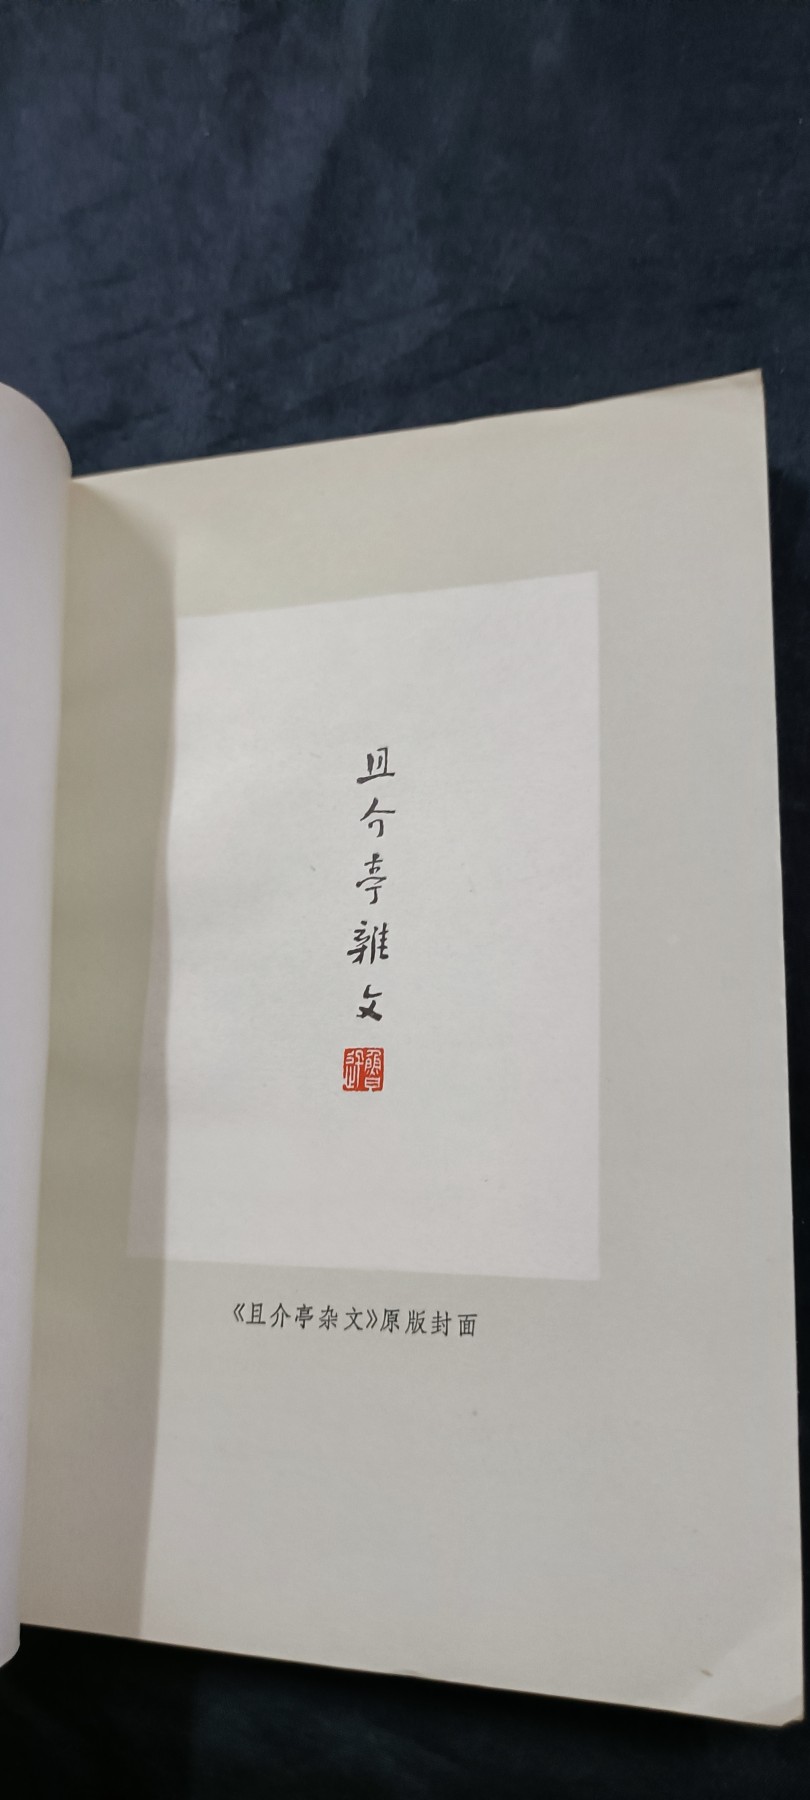 且介亭雜文
魯迅
《且介亭杂文》原版封面